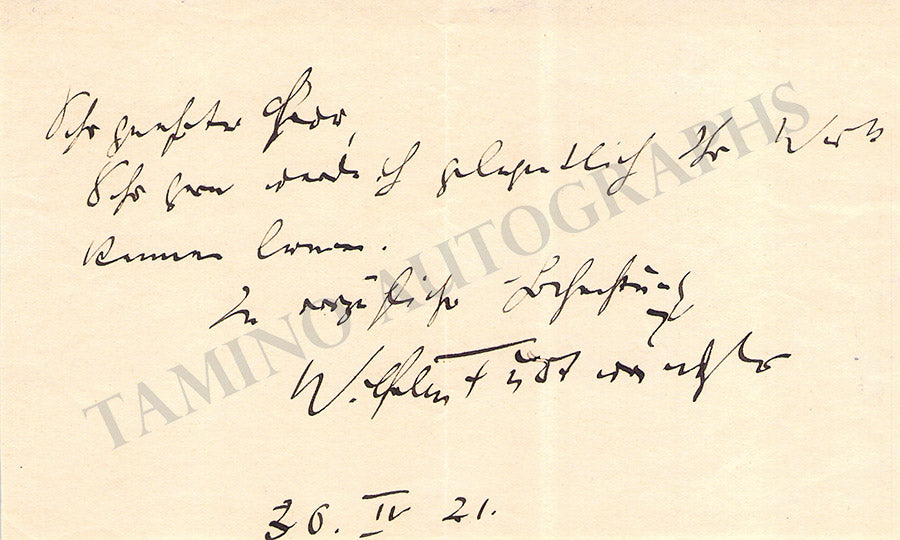 Sehr geehrter Herr,
Sehr gern werde ich gelegentlich Ihr Werk
kennen lernen.
In vorzüglicher Hochachtung
Wilhelm Furtwängler
30. IV 21.
TAMINO AUTOGRAPHS